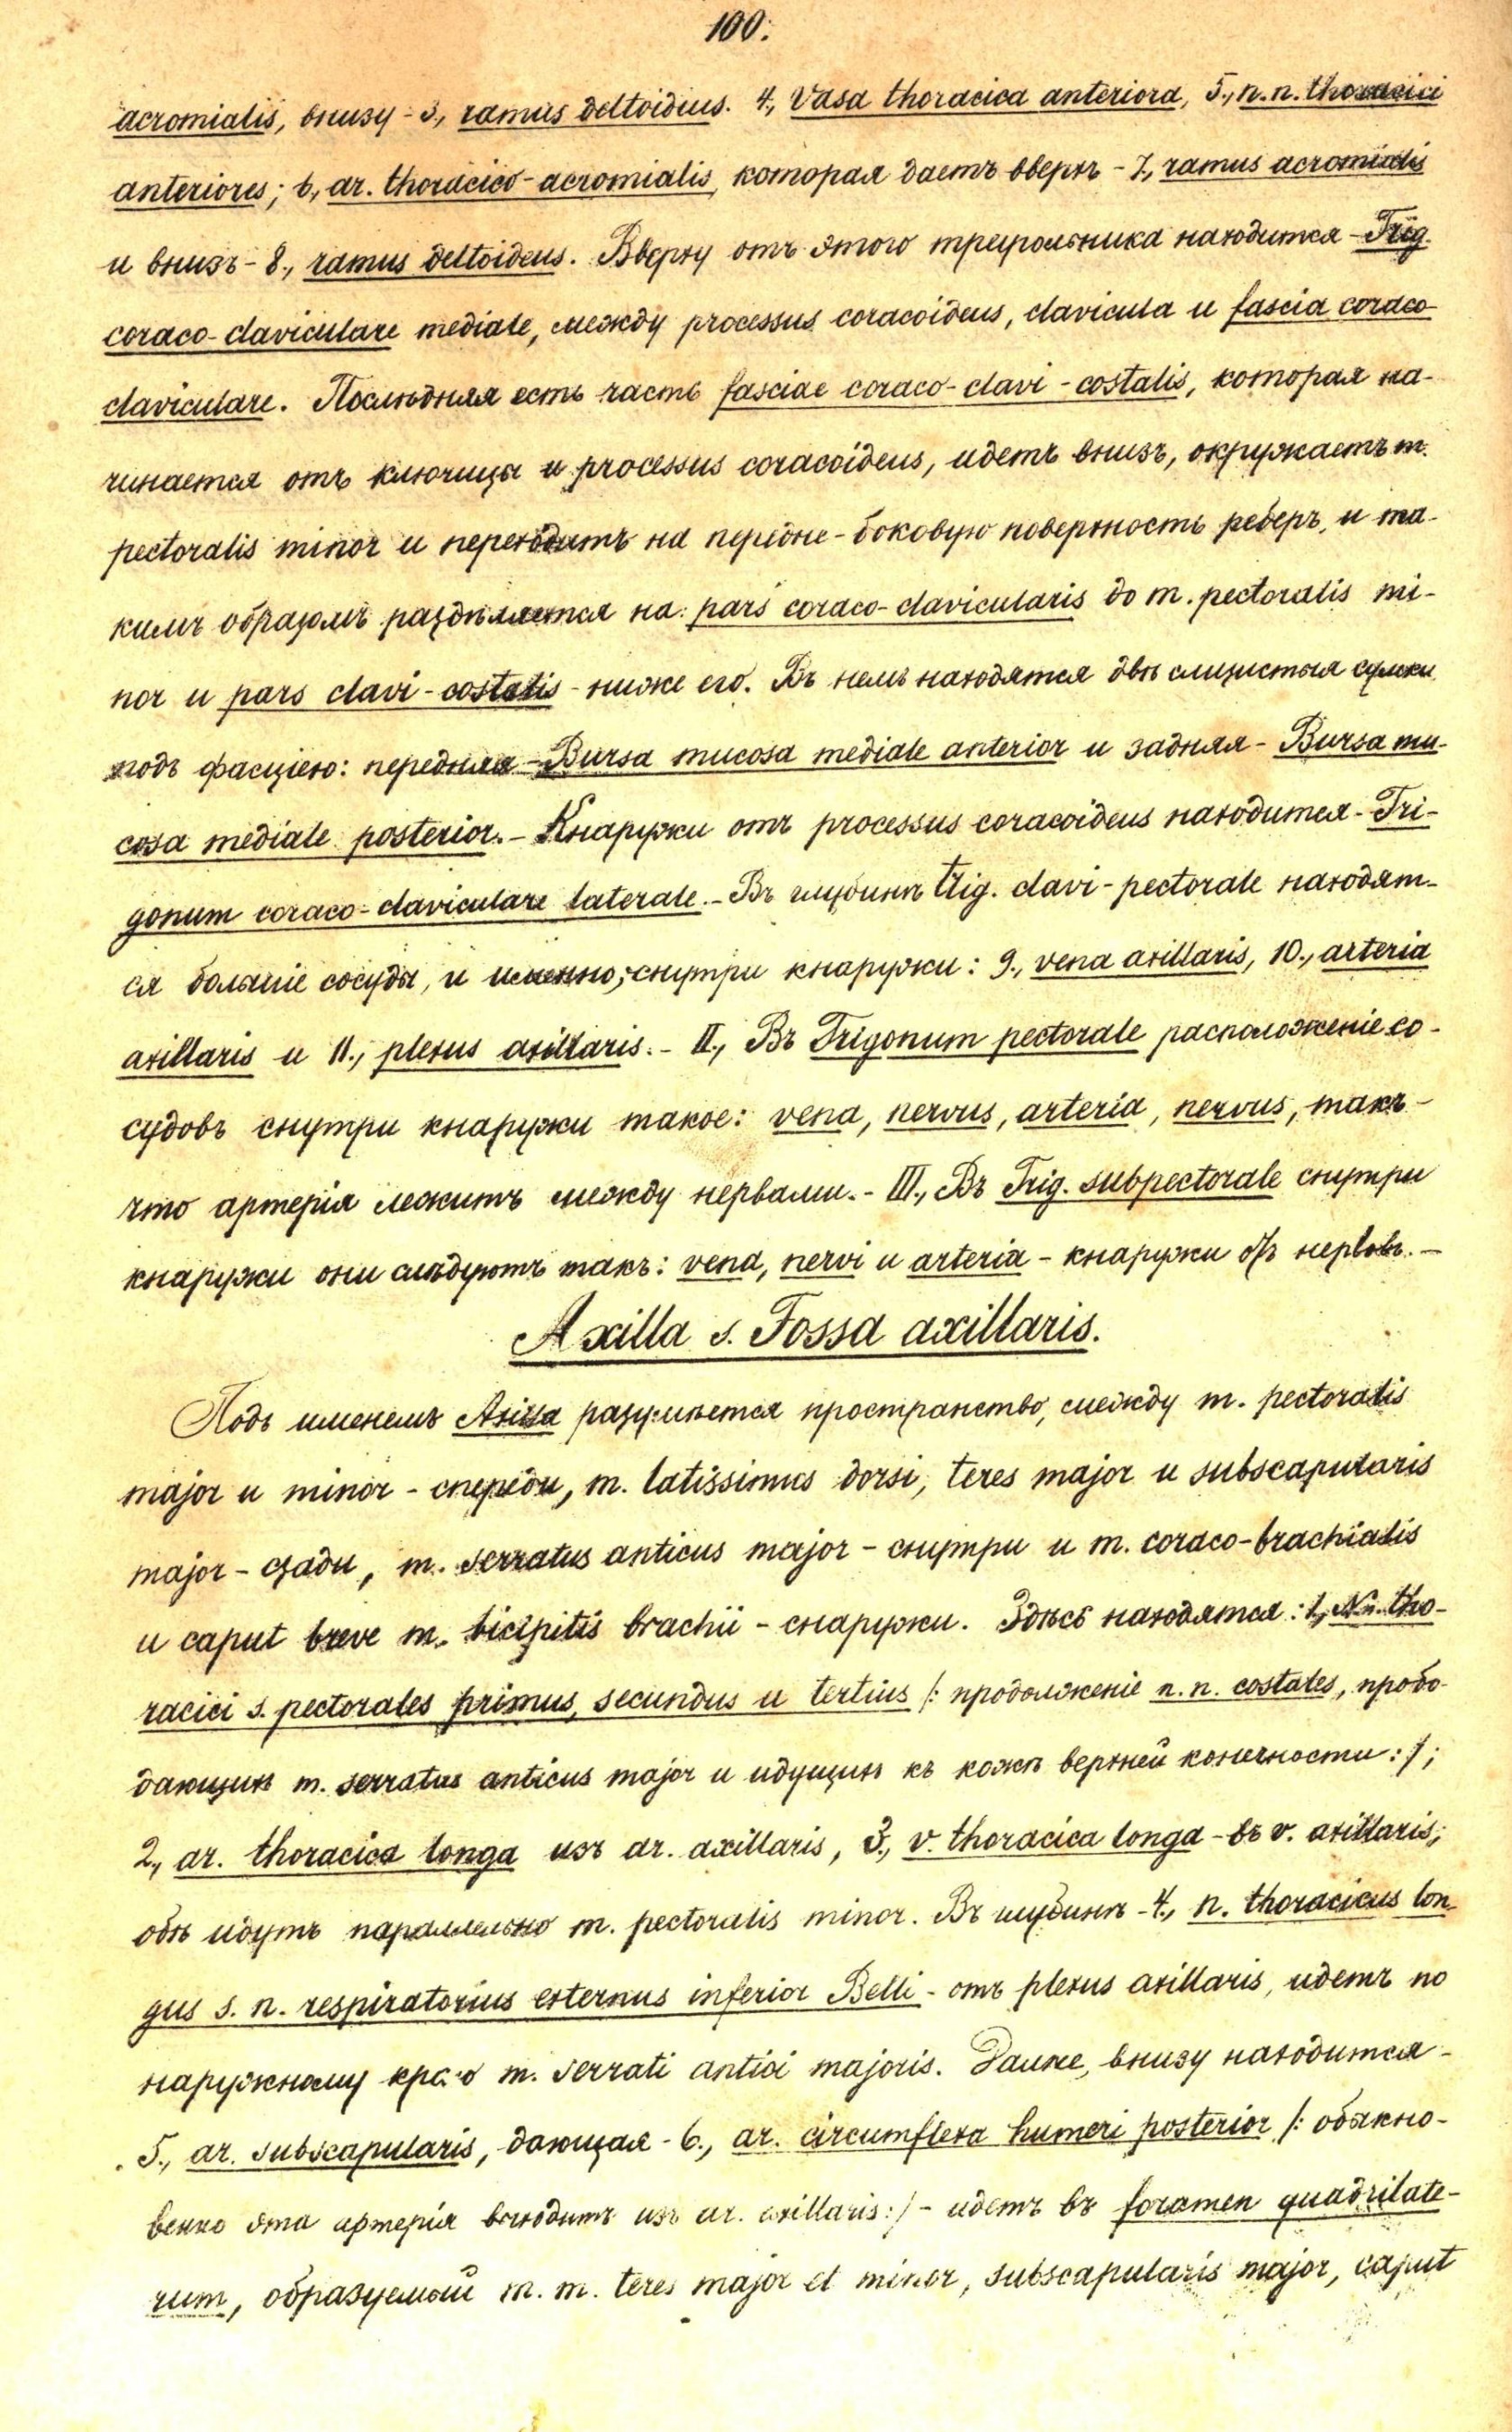 100.
acromialis, внизу - 3., ramus deltoidius. 4., Vasa thoracica anteriora, 5., n. n. thoracici
anteriores; 6., ar. thoracico-acromialis, которая даетъ вверхъ - 7., ramus acromialis
и внизъ - 8., ramus deltoideus. Вверху отъ этого треугольника находится - Trig.
coraco-claviculare mediale, между processus coracoideus, clavicula и fascia coraco
claviculare. Послѣдняя есть часть fasciae coraco-clavi-costalis, которая на-
чинается отъ ключицы и processus coracoideus, идетъ внизъ, окружаетъ m.
pectoralis minor и переходитъ на передне-боковую поверхность реберъ, и та-
кимъ образомъ раздѣляется на: pars coraco-clavicularis до m. pectoralis mi-
nor и pars clavi-costalis - ниже его. Въ немъ находятся двѣ слизистыя сумки
подъ фасціею: передняя - Bursa mucosa mediale anterior и задняя - Bursa mu-
cosa mediale posterior. - Кнаружи отъ processus coracoideus находится - Tri-
gonum coraco-claviculare laterale. - Въ глубинѣ trig. clavi-pectorale находят-
ся большіе сосуды, и именно, снутри кнаружи: 9., vena axillaris, 10., arteria
axillaris и 11., plexus axillaris. - II., Въ Trigonum pectorale расположеніе со-
судовъ снутри кнаружи такое: vena, nervus, arteria, nervus, такъ -
что артерія лежитъ между нервами. - III., Въ Trig. subpectorale снутри
кнаружи они слѣдуютъ такъ: vena, nervi и arteria - кнаружи отъ нервовъ. -
Axilla s. Fossa axillaris.
Подъ именемъ Axilla разумѣется пространство, между m. pectoralis
major и minor - спереди, m. latissimus dorsi, teres major и subscapularis
major - сзади, m. serratus anticus major - снутри и m. coraco-brachialis
и caput breve m. bicipitis brachii - снаружи. Здѣсь находятся: 1., N.n. tho-
racici s. pectorales primus, secundus и tertius /: продолженіе n. n. costales, пробо-
дающихъ m. serratus anticus major и идущихъ къ кожѣ верхней конечности :/;
2., ar. thoracica longa изъ ar. axillaris, 3., v. thoracica longa - въ v. axillaris;
обѣ идутъ параллельно m. pectoralis minor. Въ глубинѣ - 4., n. thoracicus lon-
gus s. n. respiratorius externus inferior Belli - отъ plexus axillaris, идетъ по
наружному краю m. serrati antici majoris. Далѣе, внизу находится -
5., ar. subscapularis, дающая - 6., ar. circumflexa humeri posterior /: обыкно-
венно эта артерія выходитъ изъ ar. axillaris :/ - идетъ въ foramen quadrilate-
rum, образуемый m. m. teres major et minor, subscapularis major, caput